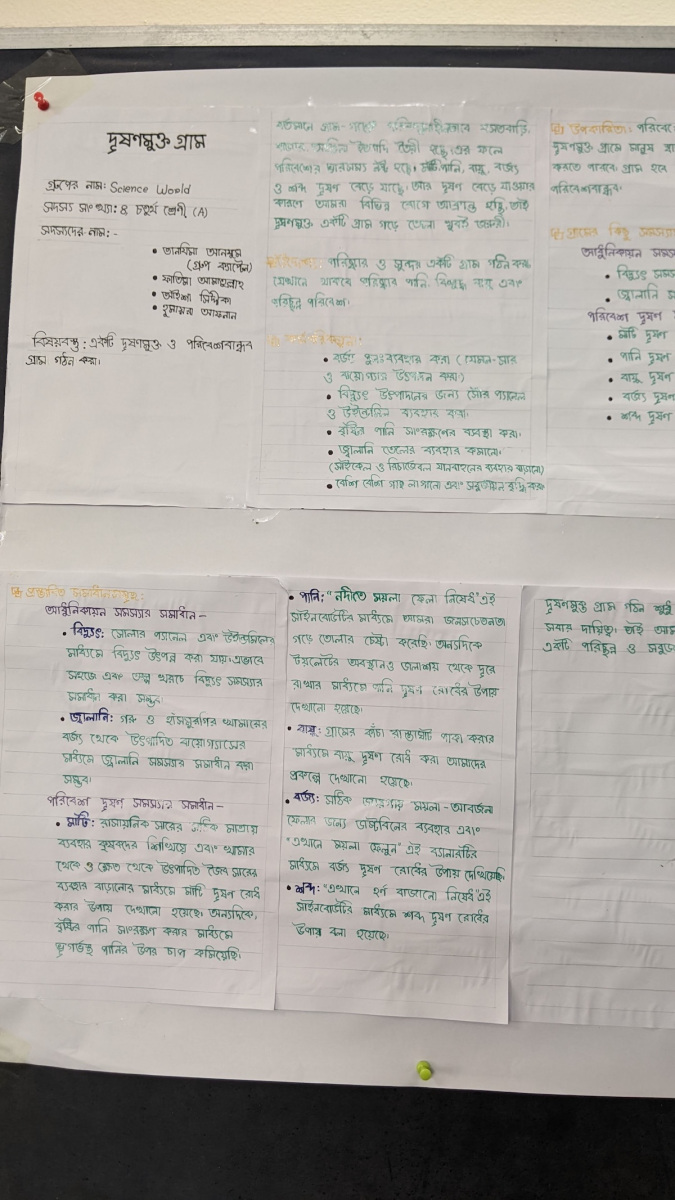 দূষণমুক্ত গ্রাম
গ্রুপের নাম: Science World
সদস্য সংখ্যা: ৪ চতুর্থ শ্রেণী (A)
সদস্যদের নাম:-
(গ্রুপ ক্যাপ্টেন)
বিষয়বস্তু: একটি দূষণমুক্ত ও পরিবেশবান্ধব
গ্রাম গঠন করা।
পরিবেশের ভারসাম্য নষ্ট হচ্ছে। মাটি, পানি, বায়ু, বর্জ্য
ও শব্দ দূষণ বেড়ে যাচ্ছে। আর দূষণ বেড়ে যাওয়ার
কারণে আমরা বিভিন্ন রোগে আক্রান্ত হচ্ছি, তাই
দূষণমুক্ত একটি গ্রাম গড়ে তোলা খুবই জরুরী।
পরিষ্কার ও সুন্দর একটি গ্রাম গঠন করা
যেখানে থাকবে পরিষ্কার পানি, বিশুদ্ধ বায়ু এবং
পরিচ্ছন্ন পরিবেশ।
• বর্জ্য পুনঃব্যবহার করা (যেমন-সার
ও বায়োগ্যাস উৎপাদন করা)
• বিদ্যুৎ উৎপাদনের জন্য সৌর প্যানেল
ও উইন্ডমিল ব্যবহার করা।
• বৃষ্টির পানি সংরক্ষণের ব্যবস্থা করা।
• জ্বালানি তেলের ব্যবহার কমানো।
(সাইকেল ও রিচার্জেবল যানবাহনের ব্যবহার বাড়ানো)
• বেশি বেশি গাছ লাগানো এবং সবুজায়ন বৃদ্ধি করা
উপকারিতা: পরিবে
দূষণমুক্ত গ্রামে মানুষ
করতে পারবে। গ্রাম হবে
পরিবেশবান্ধব।
গ্রামের কিছু সমস্যা
আধুনিকায়ন সমস
• বিদ্যুৎ সম
• জ্বালানি স
পরিবেশ দূষণ
• মাটি দূষণ
• পানি দূষণ
• বায়ু দূষণ
• বর্জ্য দূষণ
• শব্দ দূষণ
প্রস্তাবিত সমাধানসমূহ:
আধুনিকায়ন সমস্যার সমাধান-
• বিদ্যুৎ: সোলার প্যানেল এবং উইন্ডমিলের
মাধ্যমে বিদ্যুৎ উৎপন্ন করা যায়। এভাবে
সহজে এবং অল্প খরচে বিদ্যুৎ সমস্যার
সমাধান করা সম্ভব।
• জ্বালানি: গরু ও হাঁসমুরগির খামারের
বর্জ্য থেকে উৎপাদিত বায়োগ্যাসের
মাধ্যমে জ্বালানি সমস্যার সমাধান করা
সম্ভব।
পরিবেশ দূষণ সমস্যার সমাধান-
• মাটি: রাসায়নিক সারের সঠিক মাত্রায়
ব্যবহার কৃষকদের শিখিয়ে এবং খামার
থেকে ও ক্ষেত থেকে উৎপাদিত জৈব সারের
ব্যবহার বাড়ানোর মাধ্যমে মাটি দূষণ রোধ
করার উপায় দেখানো হয়েছে। অন্যদিকে,
বৃষ্টির পানি সংরক্ষণ করার মাধ্যমে
ভূগর্ভস্থ পানির উপর চাপ কমিয়েছি।
• পানি: "নদীতে ময়লা ফেলা নিষেধ" এই
সাইনবোর্ডটির মাধ্যমে আমরা জনসচেতনতা
গড়ে তোলার চেষ্টা করেছি। অন্যদিকে
টয়লেটের অবস্থানও জলাশয় থেকে দূরে
রাখার মাধ্যমে পানি দূষণ রোধের উপায়
দেখানো হয়েছে।
• বায়ু: গ্রামের কাঁচা রাস্তাঘাট পাকা করার
মাধ্যমে বায়ু দূষণ রোধ করা আমাদের
প্রকল্পে দেখানো হয়েছে।
• বর্জ্য: সঠিক জায়গায় ময়লা-আবর্জনা
ফেলার জন্য ডাস্টবিনের ব্যবহার এবং
"এখানে ময়লা ফেলুন" এই ব্যানারটির
মাধ্যমে বর্জ্য দূষণ রোধের উপায় দেখিয়েছি
• শব্দ: "এখানে হর্ন বাজানো নিষেধ" এই
সাইনবোর্ডটির মাধ্যমে শব্দ দূষণ রোধের
উপায় বলা হয়েছে।
দূষণমুক্ত গ্রাম গঠন শুধু
সবার দায়িত্ব। তাই আম
একটি পরিচ্ছন্ন ও সবুজ